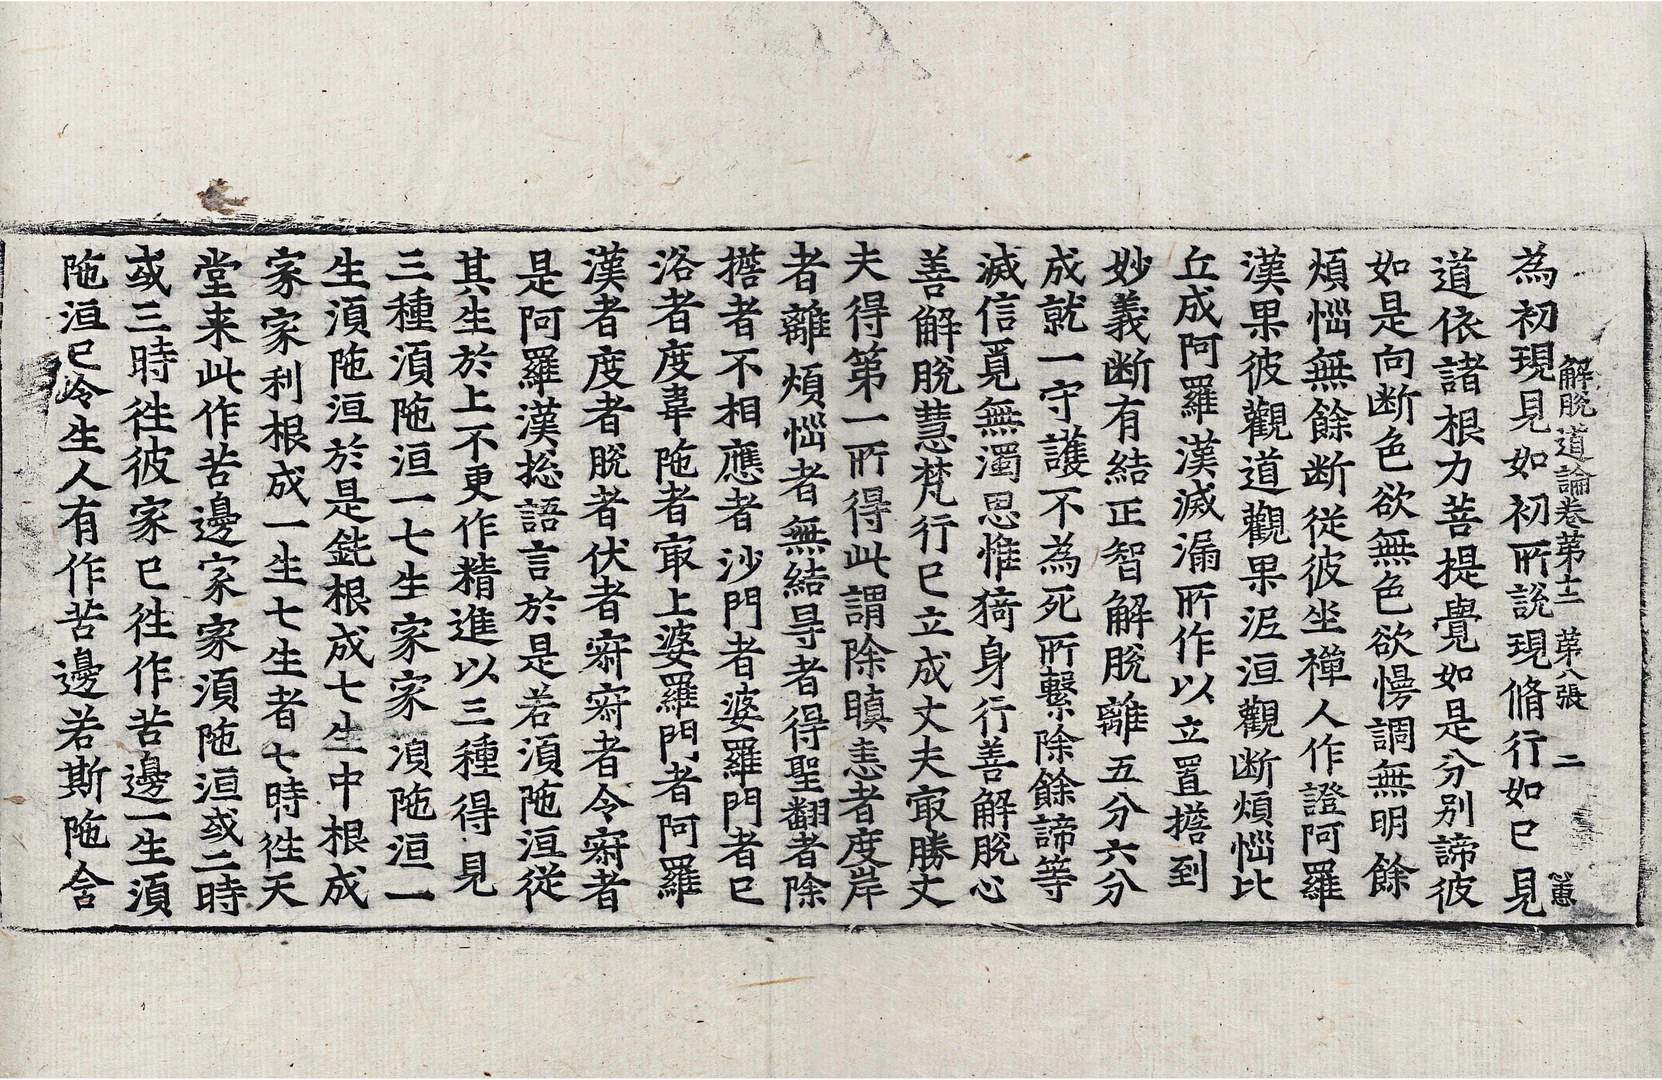 解脫道論卷第十二 第八張 二 
為初現見如初所說現脩行如已見
道依諸根力菩提覺如是分別諦彼
如是向断色欲無色欲慢調無明餘
煩惱無餘断從彼坐禪人作證阿羅
漢果彼觀道觀果泥洹觀断煩惱比
丘成阿羅漢滅漏所作以立置擔到
妙義断有結正智解脫離五分六分
成就一守護不為死所繫除餘諦等
滅信覓無濁思惟猗身行善解脫心
善解脫慧梵行已立成丈夫㝡勝丈
夫得第一所得此謂除瞋恚者度岸
者離煩惱者無結㝵者得聖翻者除
擔者不相應者沙門者婆羅門者已
浴者度韋陁者㝡上婆羅門者阿羅
漢者度者脫者伏者寂寂者令寂者
是阿羅漢捴語言於是若湏陁洹從
其生於上不更作精進以三種得見
三種湏陁洹一七生家家湏陁洹一
生湏陁洹於是鈍根成七生中根成
家家利根成一生七生者七時往天
堂来此作苦邊家家湏陁洹或二時
或三時往彼家已往作苦邊一生湏
陁洹已令生人有作苦邊若斯陁含